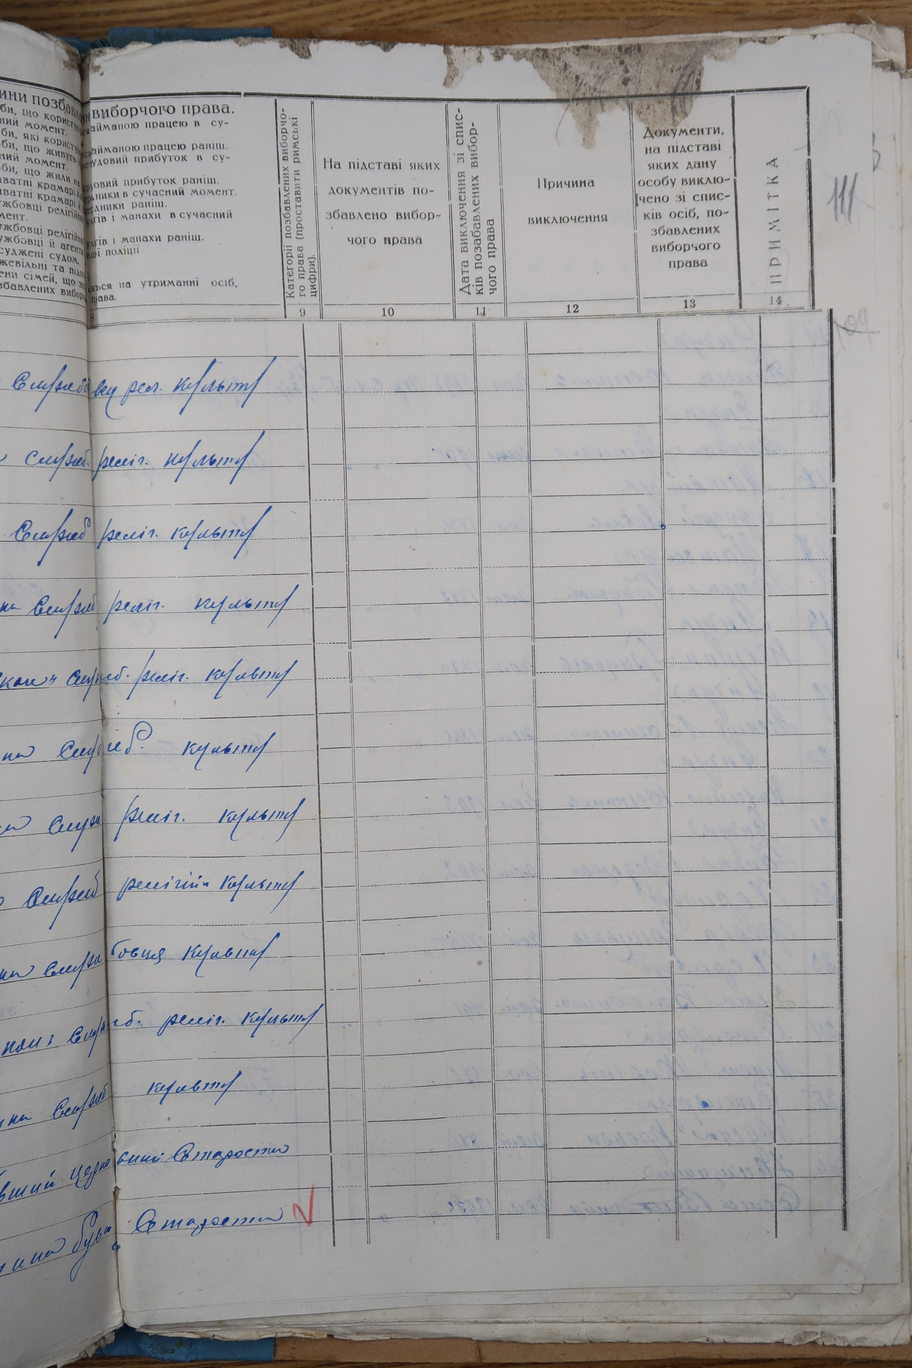 ини позбав
виборчого права.
би, що користу
найманою працею в су-
ний момент.
би, які користу
найманою працею раніш.
би, що живуть
рудовий прибуток в су-
ний момент.
би, що жили
довий прибуток раніш.
иватні крамарі
едники в сучасний момент.
иватні крамарі
едники раніш.
ужбовці релігій
лігів і манахи в сучасний
мент.
ужбовці релігій
лігів і манахи раніш.
ужбовці й агент
поліції
суджені судом.
жевільні та підо
ени сімей, що
ься на утриманні осіб,
збавлених вибор
права.
Категорії позбавлених виборчо-
го права (проставити римські
цифри).
На підставі яких
документів по-
збавлено вибор-
чого права
Дата виключення зі спис-
ків позабавлених вибор-
чого права
Причина
виключення
Документи,
на підставі
яких дану
особу виклю-
чено зі спис-
ків осіб, по-
збавлених
виборчого
права
ПРИМІТКА
111
9 10 11 12 13 14
109
Службовку рел. культу
служб. реліг. культу
Служб реліг. культу
на Служб реліг. культу
служб. реліг. культу
на Служб. культу
служ реліг. культу
Служб релігійн культу
на службовця культу
Служб. реліг. культу
на Служб культу
вший церковний Староста
Староста